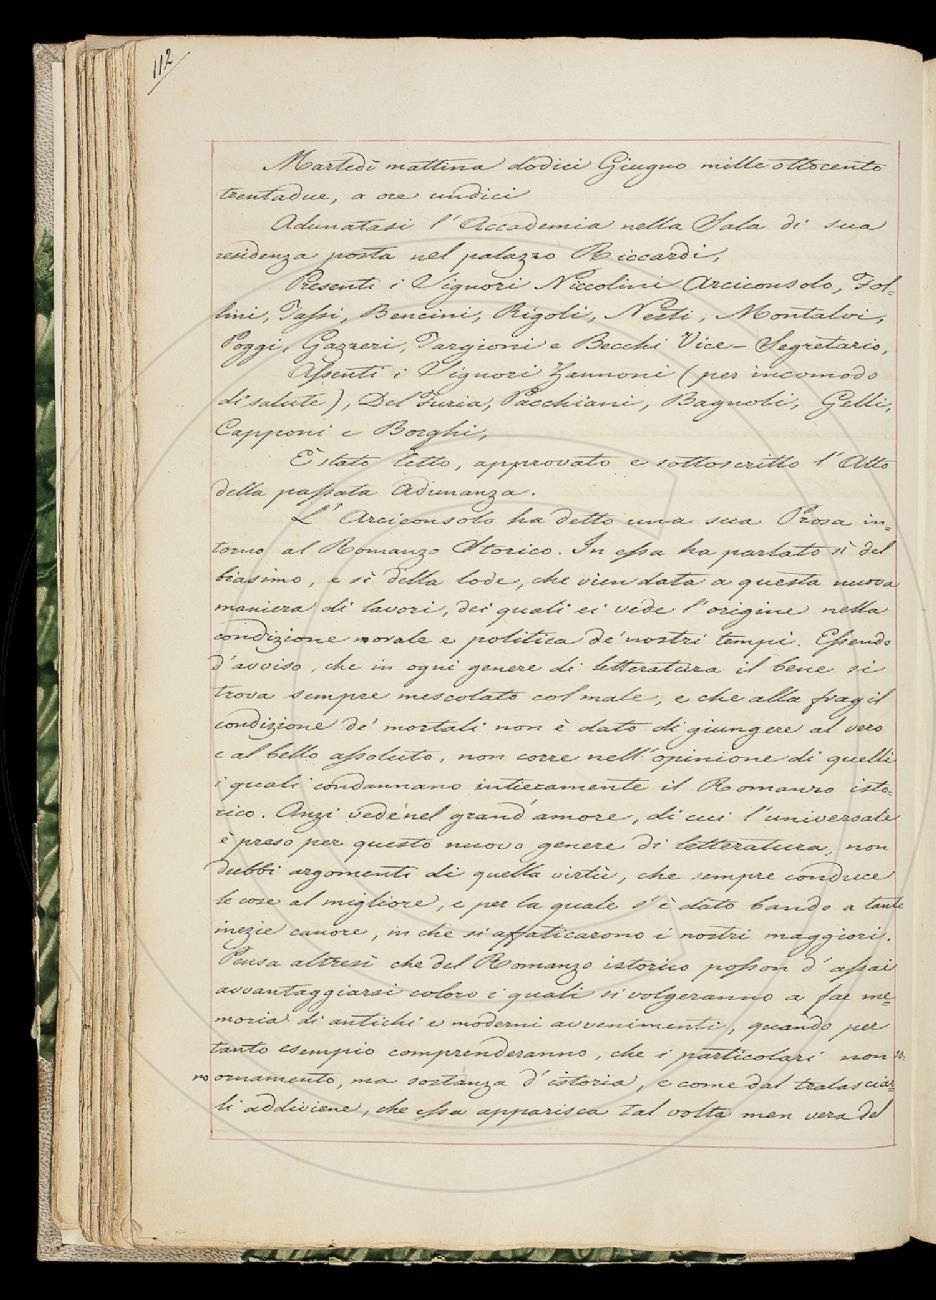 112
Martedì mattina dodici Giugno mille ottocento
trentadue, a ore undici
Adunatasi l'Accademia nella Sala di sua
residenza posta nel palazzo Riccardi,
Presenti i Signori Niccolini Arciconsolo, Fol-
lini, Tassi, Bencini, Rigoli, Nesti, Montalvi,
Poggi, Gazzeri, Targioni e Becchi Vice-Segretario,
Assenti i Signori Zannoni (per incomodo
di salute), Del Furia, Pacchiani, Bagnoli, Gelli,
Capponi e Borghi,
È stato letto, approvato e sottoscritto l'Atto
della passata Adunanza.
L'Arciconsolo ha detto una sua Prosa in=
torno al Romanzo Storico. In essa ha parlato sì del
biasimo, e sì della lode, che vien data a questa nuova
maniera di lavori, dei quali ei vede l'origine nella
condizione morale e politica de' nostri tempi. Essendo
d'avviso, che in ogni genere di letteratura il bene si
trova sempre mescolato col male, e che alla fragil
condizione de' mortali non è dato di giungere al vero
e al bello assoluto, non corre nell'opinione di quelli
i quali condannano intieramente il Romanzo isto=
rico. Anzi vede nel grand'amore, di cui l'universale
è preso per questo nuovo genere di letteratura, non
dubbi argomenti di quella virtù, che sempre conduce
le cose al migliore, e per la quale s'è dato bando a tante
inezie canore, in che si affaticarono i nostri maggiori.
Pensa altresì che del Romanzo istorico posson d'assai
avvantaggiarsi coloro i quali si volgeranno a far me=
moria di antichi e moderni avvenimenti, quando per
tanto esempio comprenderanno, che i particolari non so.
no ornamento, ma sostanza d'istoria, e come dal tralasciar=
li addiviene, che essa apparisca tal volta men vera del